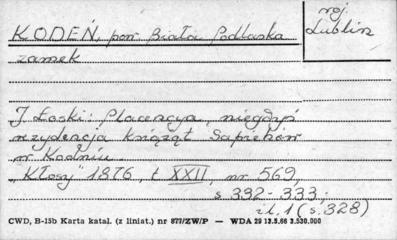 KODEŃ, pow. Biała Podlaska
woj. Lublin
zamek
J. Łoski: Placencya, niegdyś
rezydencja książąt Sapiehów
w Kodniu.
„Kłosy" 1876, t XXII, nr 569,
s. 332-333.
il. 1 (s. 328)
CWD, B-15b Karta katal. (z liniat.) nr 877/ZW/P — WDA 29 13.5.66 3.530.000